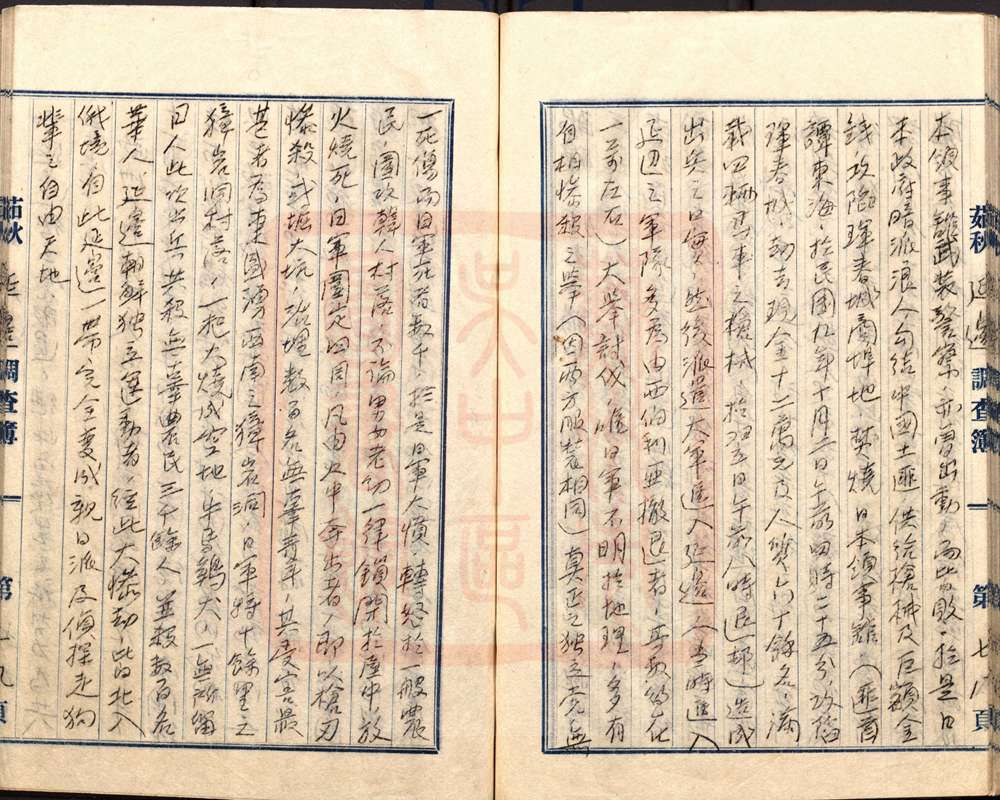 茹秋 延邊 調查簿 一 第 十八 頁
本領事雖武裝警察,亦曾出動,而皆敗,於是日
本政府暗派浪人勾結中國土匪供給槍械及巨額金
錢攻陷琿春城商埠地,焚燒日本領事館(匪首
譚東海,於民國九年十月二日午前四時二十五分,攻陷
琿春城,劫去現金十二萬元及人質六十餘名,滿
載四輛馬車之槍械,於理五日午前八時退卻)造成
出兵之口實,然後派遣大軍進入延邊(當時進入
延邊之軍隊多為由西伯利亞撤退者,兵數約在
一萬左右)大舉討伐,唯日軍不明於地理,多有
自相慘殺之舉(因兩方服裝相同)真正之獨立党無
一死傷而日軍死者數千,於是日軍大憤轉怒於一般農
民,圍攻韓人村落,不論男女老幼一律鎖閉於屋中,放
火燒死,日軍圍定四周,凡由火中奔出者,即以槍刃
慘殺,或掘大坑,活埋數百名無辜青年,其受害最
甚者為東國湧西南之獐岩洞,日軍將十餘里之
獐岩洞村落,一把大燒成空地,牛馬鷄犬,一無所留
日人此次出兵共殺無辜農民三千餘人,並殺數百名
華人,延邊朝鮮獨立運動者,經此大慘劫,皆北入
俄境,自此延邊一帶完全變成親日派及偵探走狗
輩之自由天地
茹秋 延邊 調查簿 一 第 十九 頁